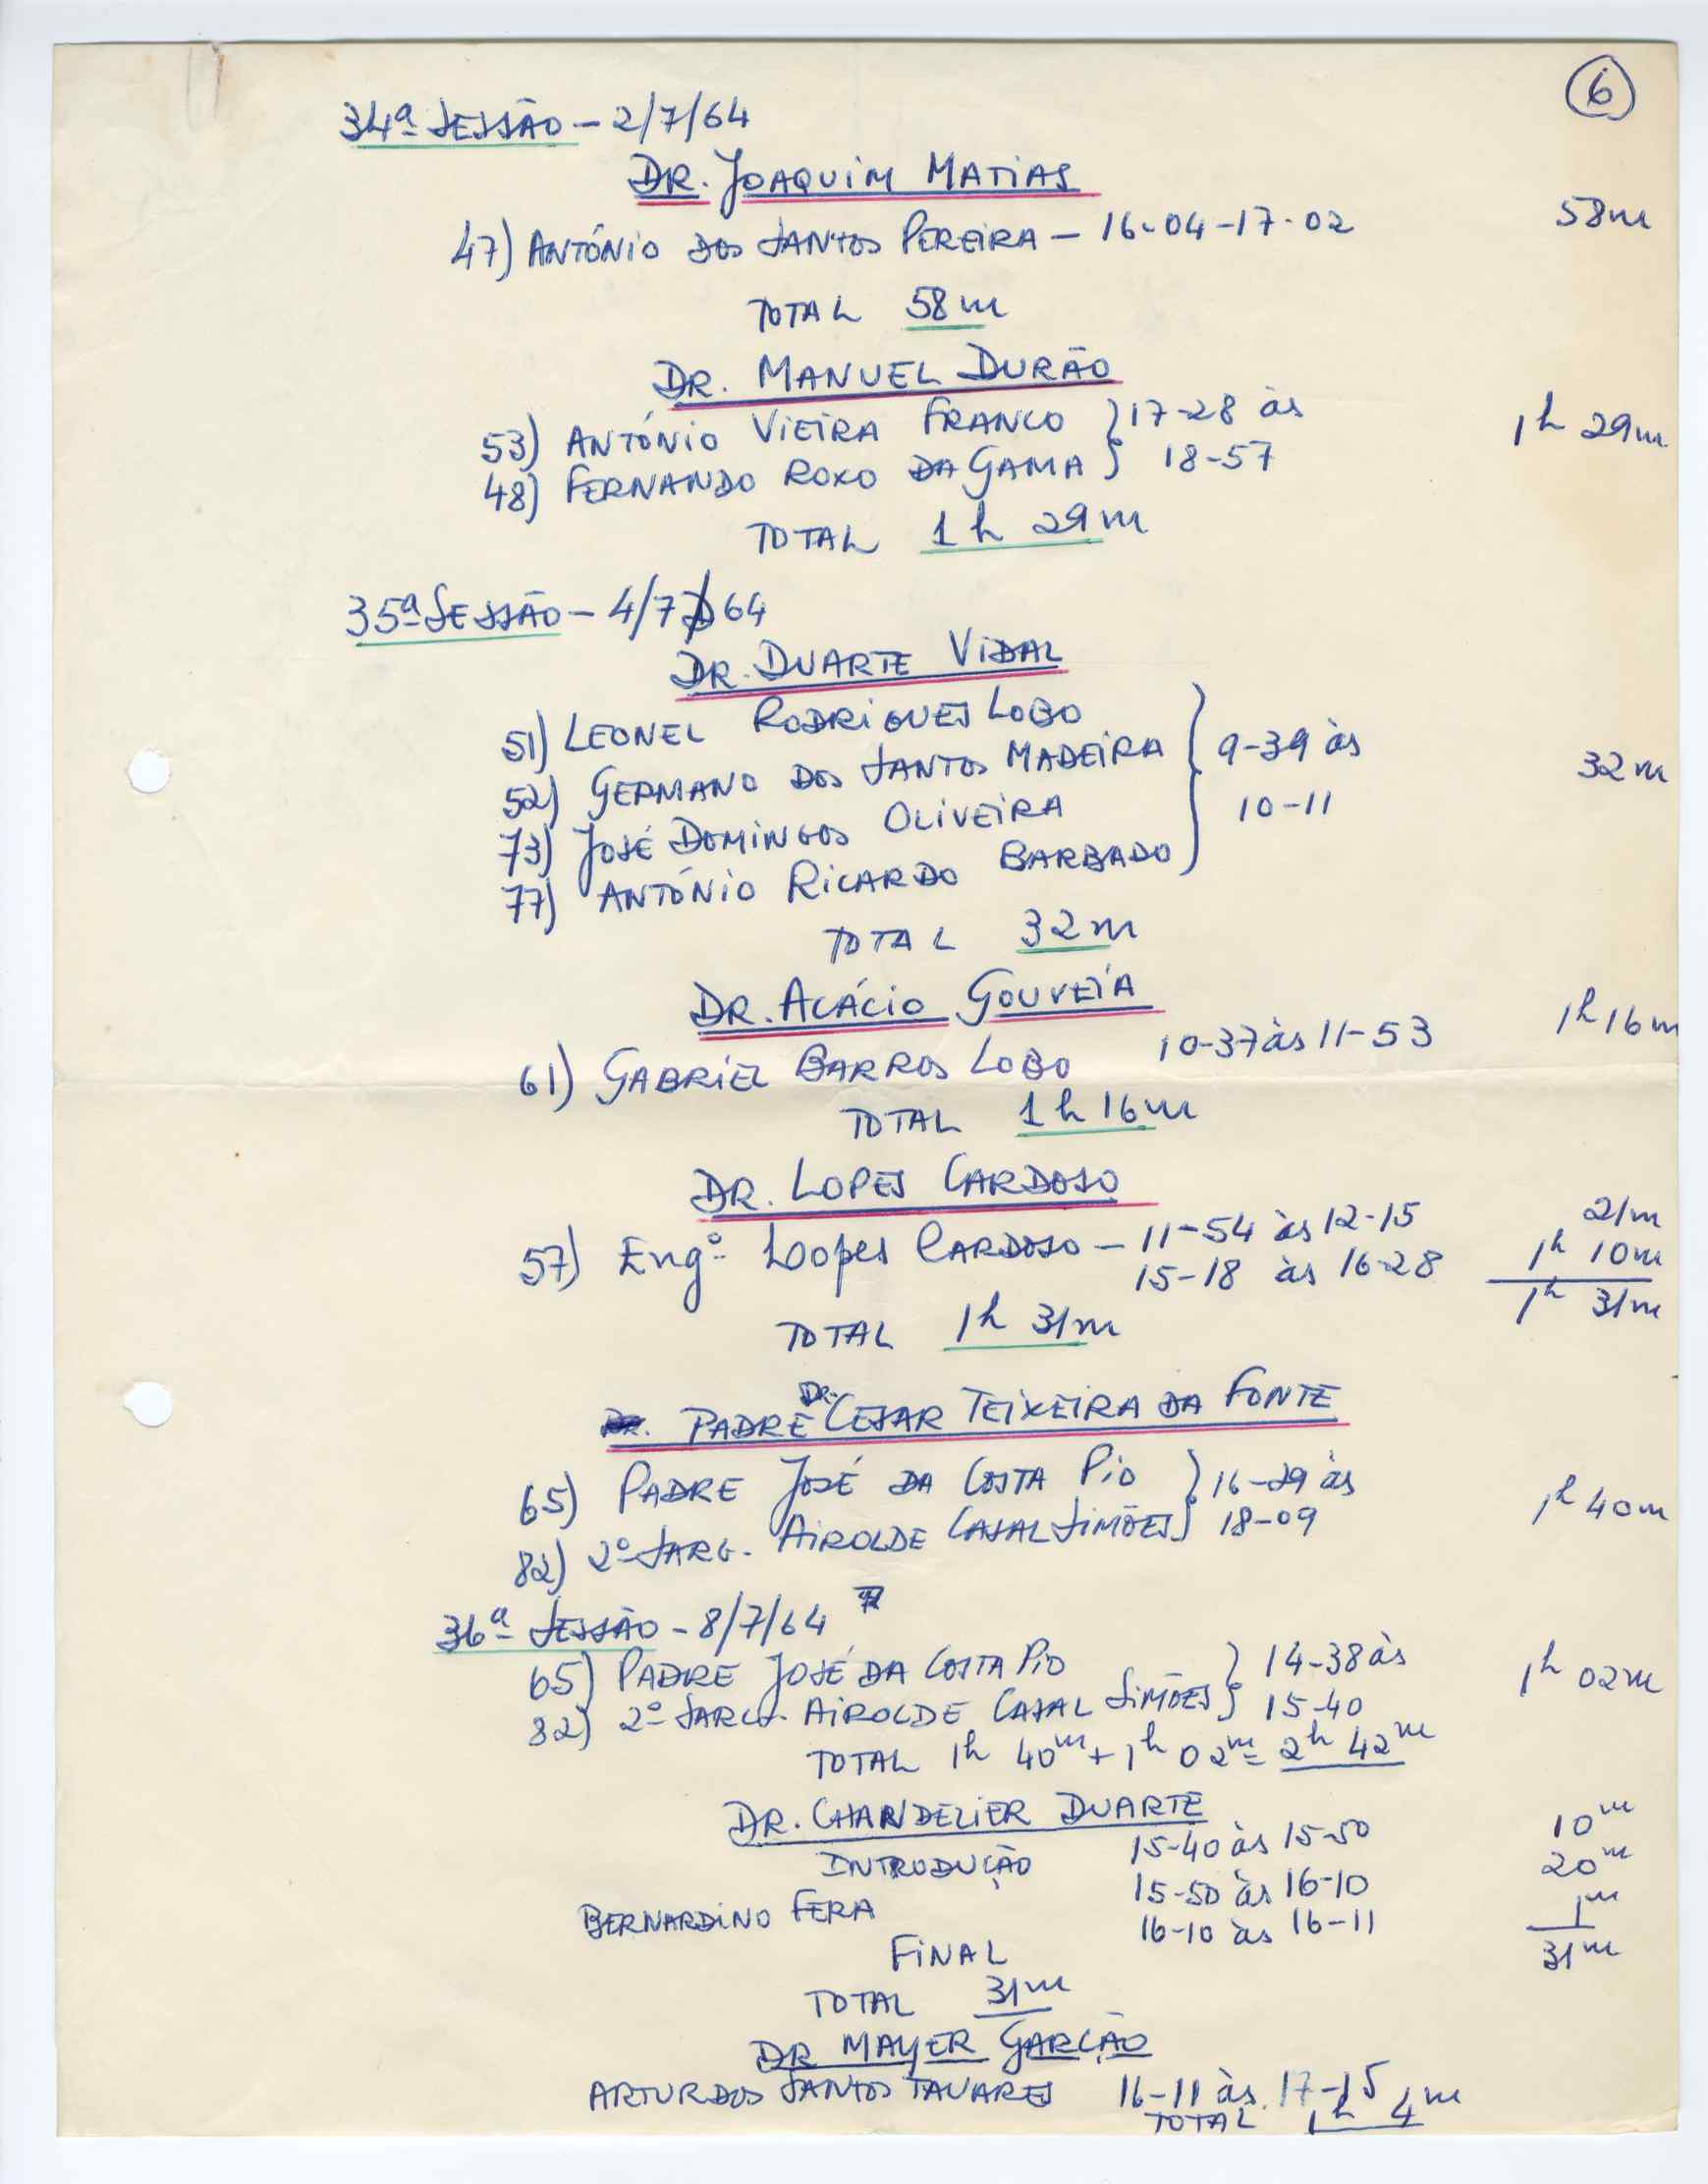 6
34ª SESSÃO - 2/7/64
DR. JOAQUIM MATIAS
47) ANTÓNIO DOS SANTOS PEREIRA - 16-04-17-02 58m
TOTAL 58m
DR. MANUEL DURÃO
53) ANTÓNIO VIEIRA FRANCO } 17-28 às 1h 29m
48) FERNANDO ROXO DA GAMA } 18-57
TOTAL 1h 29m
35ª SESSÃO - 4/7/64
DR. DUARTE VIDAL
51) LEONEL RODRIGUES LOBO
52) GERMANO DOS SANTOS MADEIRA } 9-39 às 32m
73) JOSÉ DOMINGOS OLIVEIRA 10-11
77) ANTÓNIO RICARDO BARBADO
TOTAL 32m
DR. ACÁCIO GOUVEIA
61) GABRIEL BARROS LOBO 10-37 às 11-53 1h 16m
TOTAL 1h 16m
DR. LOPES CARDOSO
57) Engº Loopes CARDOSO - 11-54 às 12-15 21m
15-18 às 16-28 1h 10m
1h 31m
TOTAL 1h 31m
PADRE DR. CESAR TEIXEIRA DA FONTE
65) PADRE JOSÉ DA COSTA PIO } 16-29 às 1h 40m
82) 2º SARG. AIROLDE CASAL SIMÕES } 18-09
36ª SESSÃO - 8/7/64
65) PADRE JOSÉ DA COSTA PIO } 14-38 às 1h 02m
82) 2º SARG. AIROLDE CASAL SIMÕES } 15-40
TOTAL 1h 40m + 1h 02m = 2h 42m
DR. CHANDELIER DUARTE
INTRODUÇÃO 15-40 às 15-50 10m
BERNARDINO FERA 15-50 às 16-10 20m
FINAL 16-10 às 16-11 1m
31m
TOTAL 31m
DR MAYER GARÇÃO
ARTUR DOS SANTOS TAVARES 16-11 às 17-15
TOTAL 1h 4m